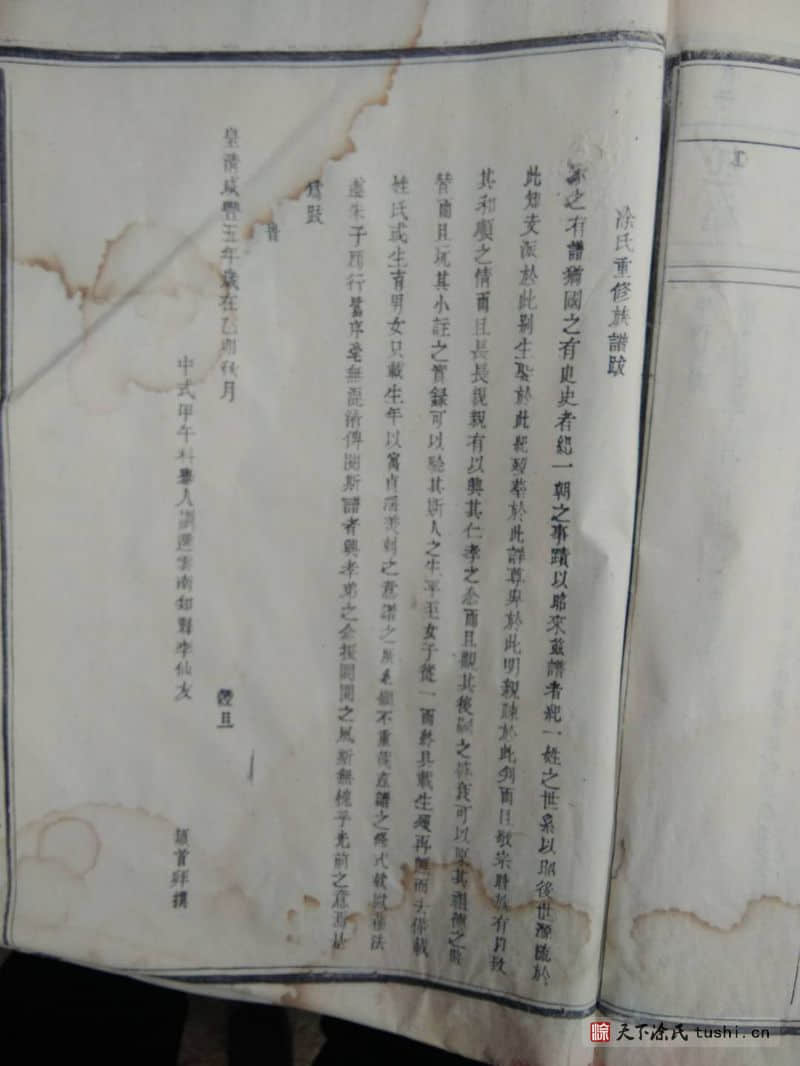 涂氏重修族譜跋
家之有譜猶國之有史史者紀一朝之事蹟以昭來茲譜者紀一姓之世系以昭後世源流於
此知支派於此別生聚於此紀墳塋於此詳尊卑於此明親疎於此列而且敬宗睦族有以致
其和順之情而且長長親親有以興其仁孝之念而且觀其後嗣之盛衰可以原其祖德之
替而且玩其小註之實錄可以驗其斯人之生平至女子從一而終具載生歿再醮而去僅載
姓氏或生育男女只載生年以寓貞淫美刺之意譜之所系顧不重哉在譜之格式敘次筆法
遵朱子所行舊序毫無混淆俾閱斯譜者興孝弟之念振閭閻之風斯無愧乎光前之意焉是
為跋
皇清咸豐五年歲在乙卯秋月
穀旦
中式甲午科舉人選雲南知縣李仙友
頓首拜撰
涂
天下涂氏 tushi.cn